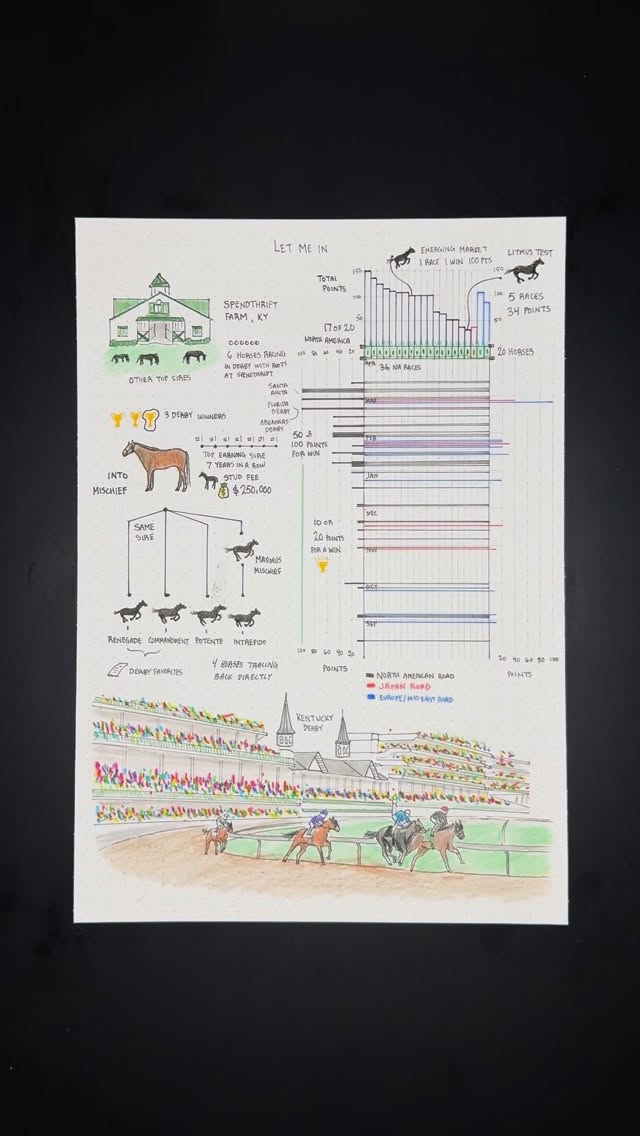 LET ME IN
SPENDTHRIFT
FARM, KY
6 HORSES RACING
IN DERBY WITH ROOTS
AT SPENDTHRIFT
OTHER TOP SIRES
3 DERBY WINNERS
TOP EARNING SIRE
7 YEARS IN A ROW
STUD FEE
$250,000
INTO
MISCHIEF
SAME
SIRE
MISCHIEF
RENEGADE COMMANDMENT POTENTE INTREPIDO
DERBY FAVORITES
4 HORSES TRACING
BACK DIRECTLY
EMERGING MARKET
1 RACE 1 WIN 100 PTS
LITMUS TEST
5 RACES
34 POINTS
TOTAL
POINTS
150
100
50
150
100
50
17 OF 20
NORTH AMERICA
100 80 60 40 20
20 HORSES
APR 36 NA RACES
SANTA
ANITA
FLORIDA
DERBY
ARKANSAS
DERBY
MAR
50 &
100 POINTS
FOR WIN
FEB
JAN
DEC
10 OR
20 POINTS
FOR A WIN
NOV
OCT
SEP
100 80 60 40 20
POINTS
20 40 60 80 100
POINTS
NORTH AMERICAN ROAD
JAPAN ROAD
EUROPE/MID EAST ROAD
KENTUCKY
DERBY